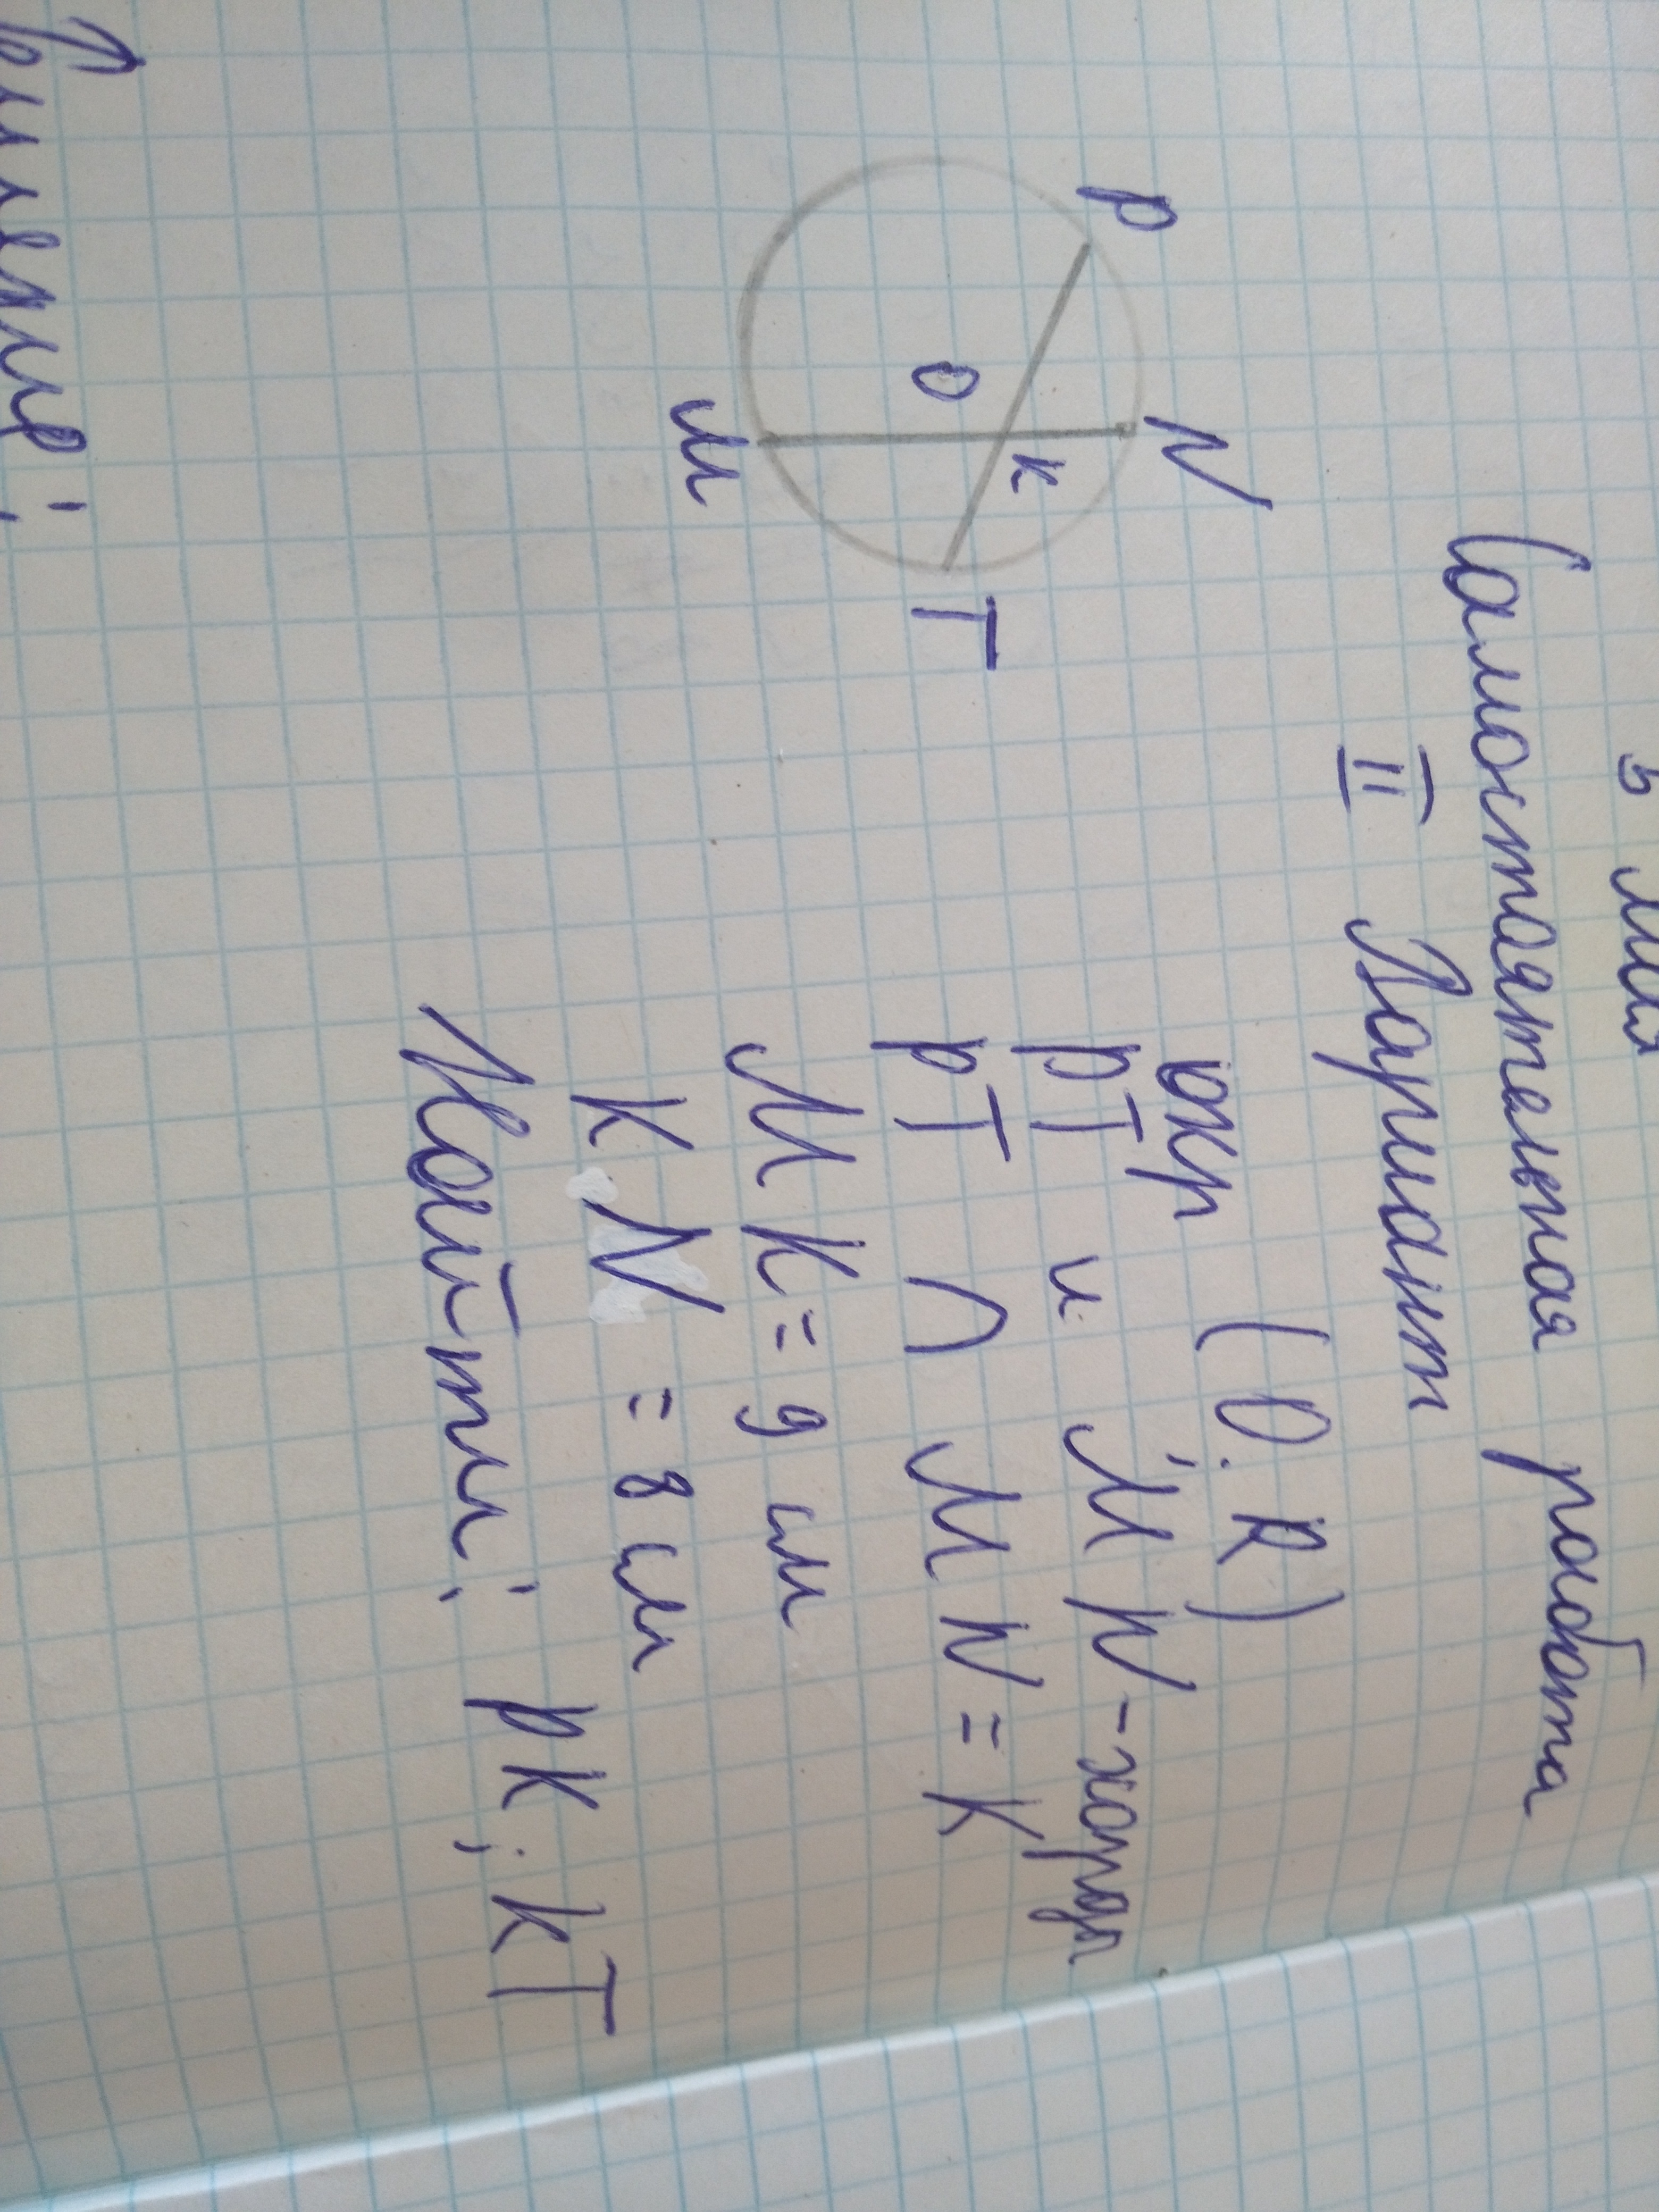 Самостоятельная работа
II Вариант
окр (O; R)
PT и MN - хорды
PT ∩ MN = K
MK = 9 см
KN = 8 см
Найти: PK; KT
P
N
O
K
M
T
Решение: